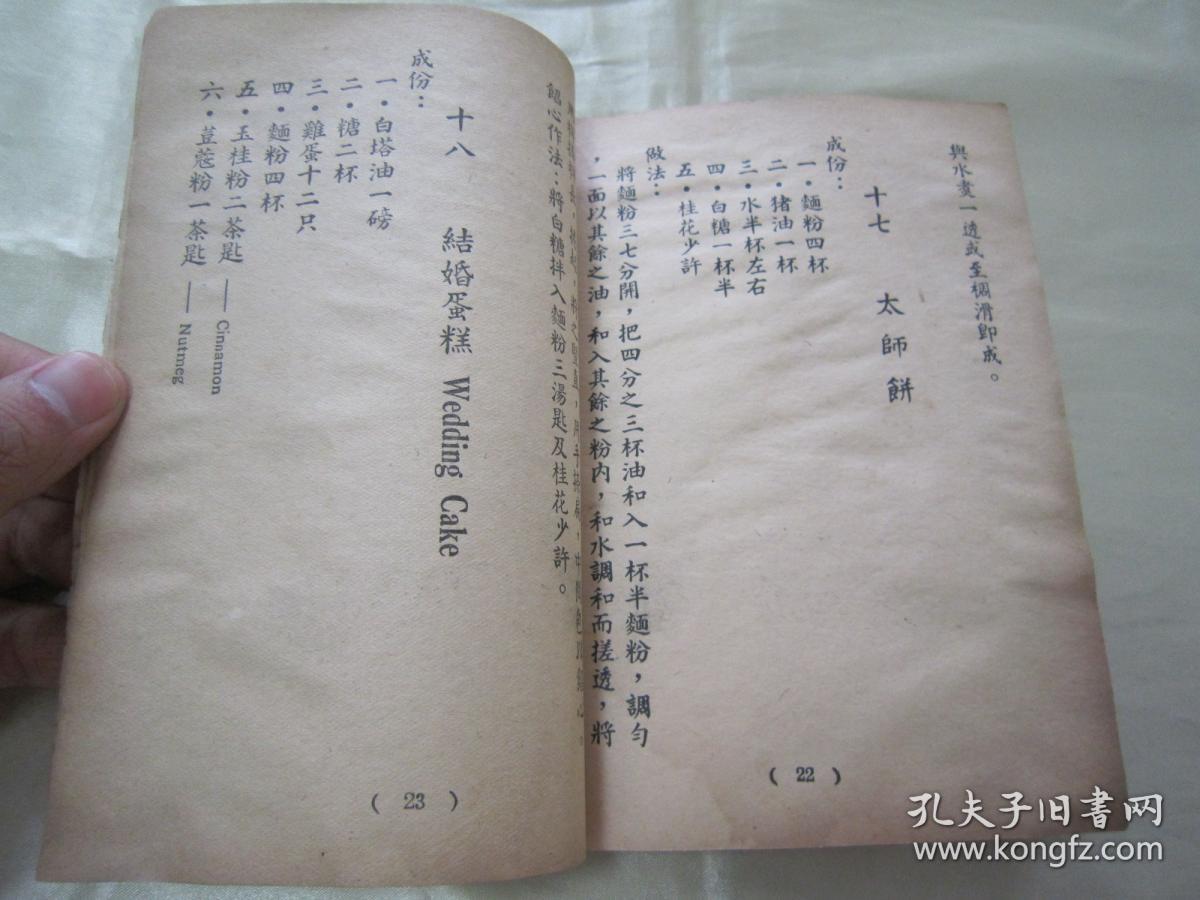 與水煮一透或至稠滑即成。
十七 太師餅
成份：
一•麵粉四杯
二•猪油一杯
三•水半杯左右
四•白糖一杯半
五•桂花少許
做法：
將麵粉三七分開，把四分之三杯油和入一杯半麵粉，調勻
，一面以其餘之油，和入其餘之粉內，和水調和而搓透，將
( 22 )
餡心作法：將白糖拌入麵粉三湯匙及桂花少許。
十八 結婚蛋糕 Wedding Cake
成份：
一•白塔油一磅
二•糖二杯
三•雞蛋十二只
四•麵粉四杯
五•玉桂粉二茶匙 —— Cinnamon
六•荳蔻粉一茶匙 —— Nutmeg
( 23 )
孔夫子旧书网
www.kongfz.com